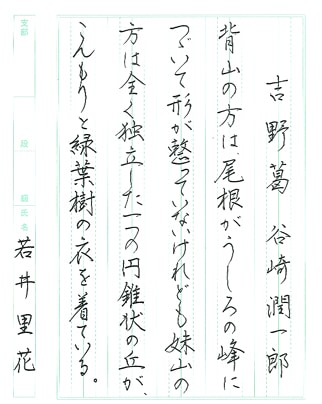 吉野葛 谷崎潤一郎
背山の方は、尾根がうしろの峰に
つづいて形が整っていないけれども妹山の
方は全く独立した一つの円錐状の丘が、
こんもりと緑葉樹の衣を着ている。
支部
段
級
氏名
若井里花